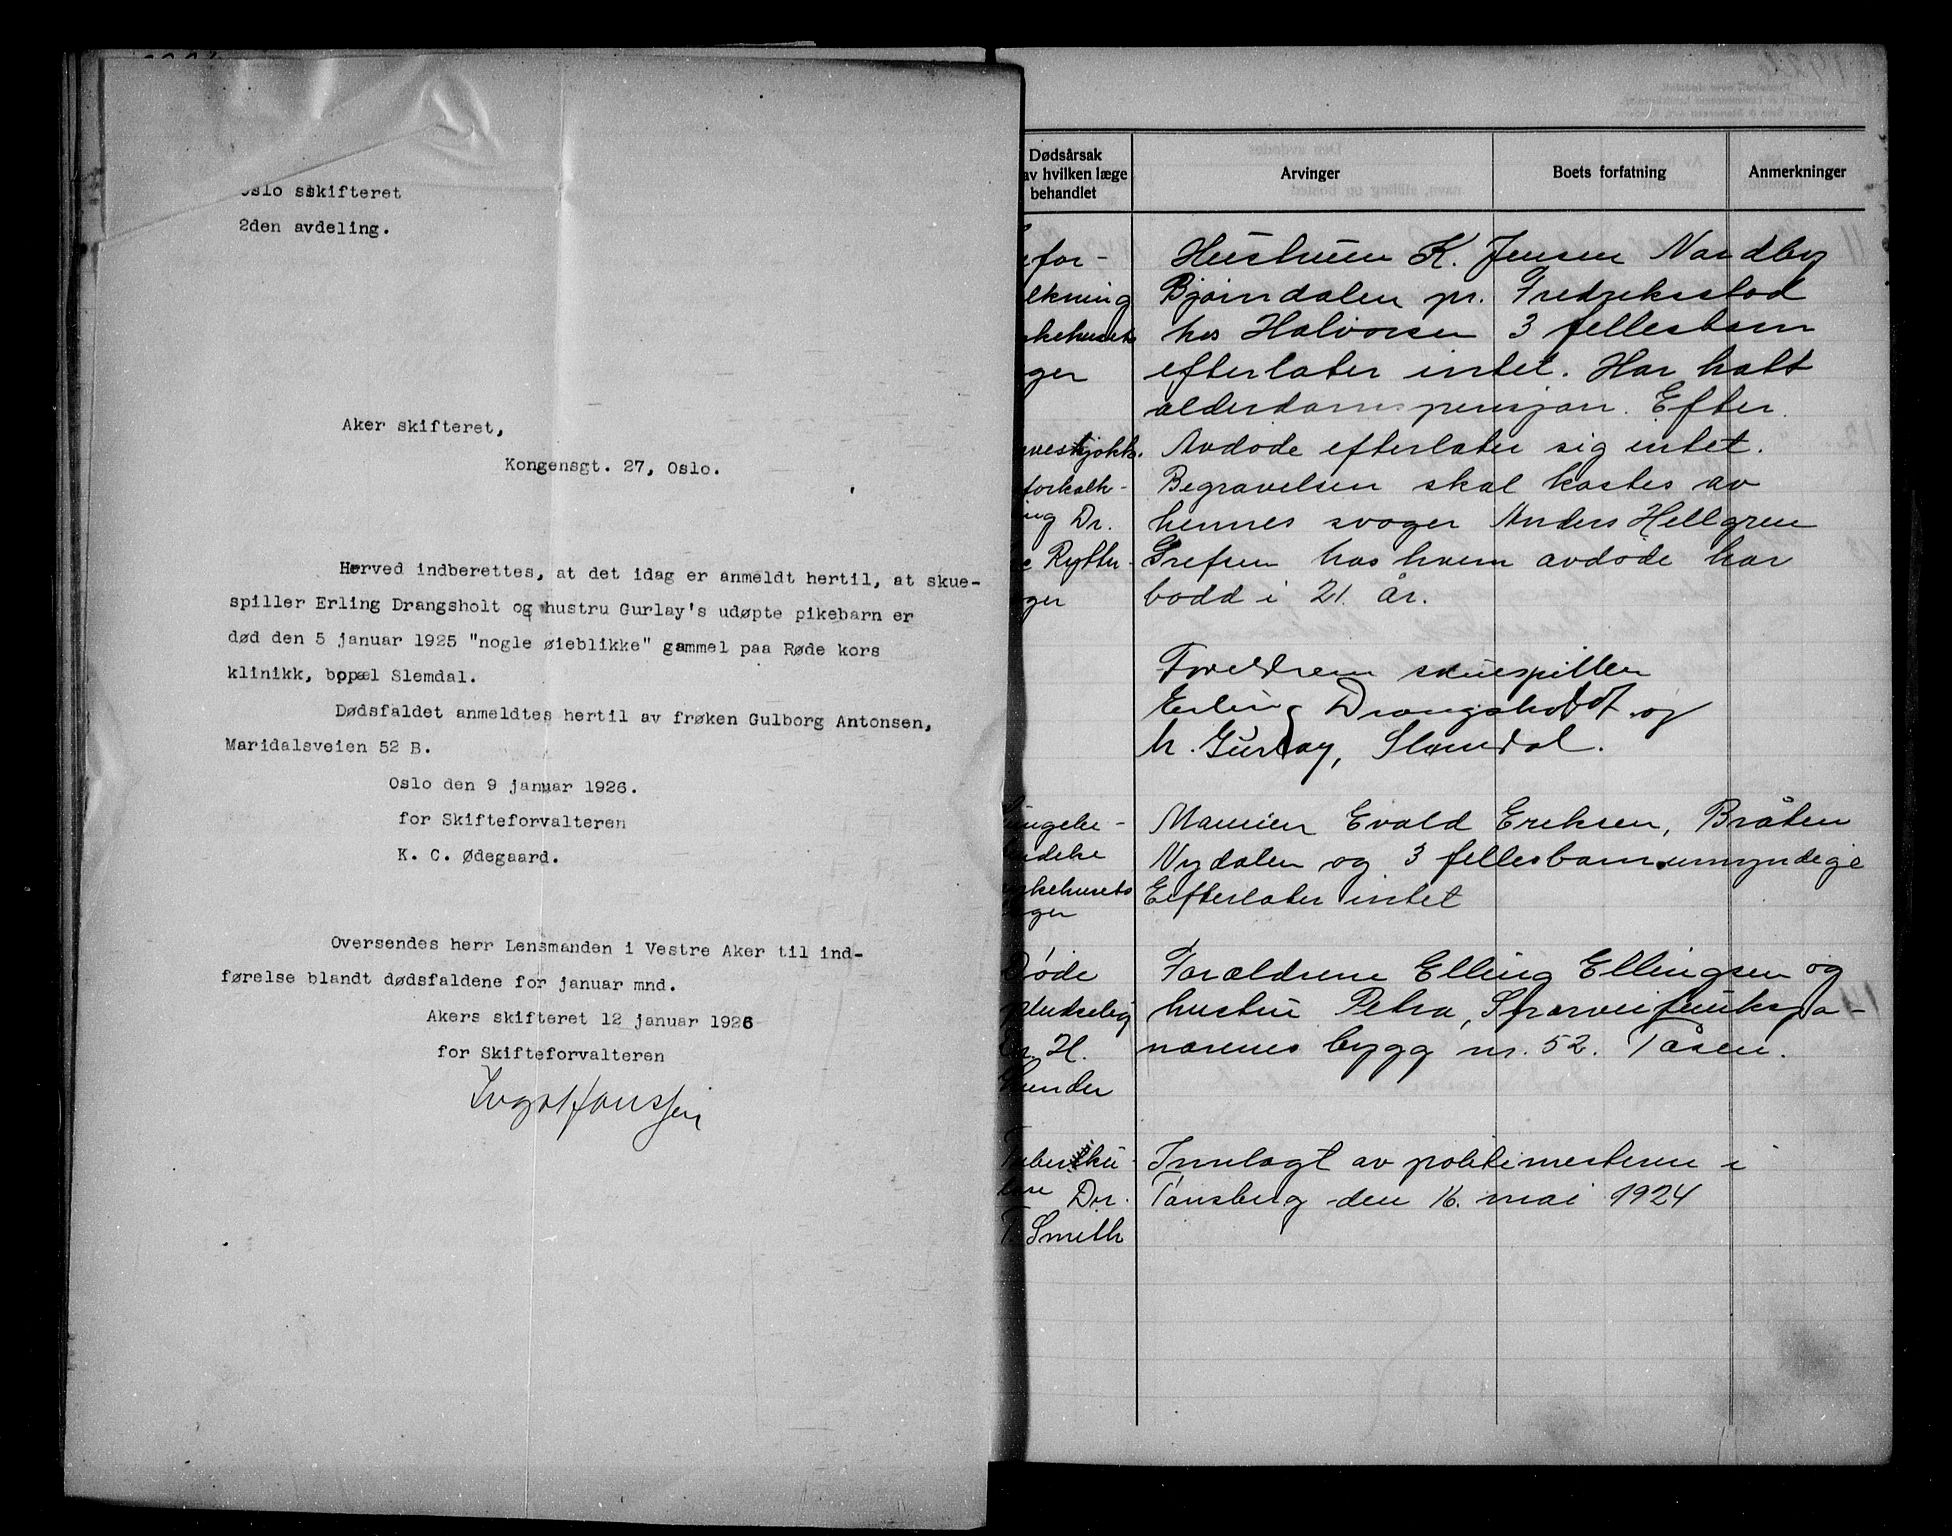 Oslo sskifteret
2den avdeling.
Aker skifteret,
Kongensgt. 27, Oslo.
Herved indberettes, at det idag er anmeldt hertil, at skue-
spiller Erling Drangsholt og hustru Gurlay's udøpte pikebarn er
død den 5 januar 1925 "nogle øieblikke" gammel paa Røde kors
klinikk, bopæl Slemdal.
Dødsfaldet anmeldtes hertil av frøken Gulborg Antonsen,
Maridalsveien 52 B.
Oslo den 9 januar 1926.
for Skifteforvalteren
K. C. Ødegaard.
Oversendes herr Lensmanden i Vestre Aker til ind-
førelse blandt dødsfaldene for januar mnd.
Akers skifteret 12 januar 1926
for Skifteforvalteren
Dødsårsak
av hvilken læge
behandlet
Arvinger
Boets forfatning
Anmerkninger
for-
kning
kehusets
ger
Hustruen K. Jensen Nordby
Bjørndalen pr. Fredriksstad
hos Halvorsen 3 fellesbarn
efterlater intet. Har hatt
alderdomspensjon. Efter.
forkalk-
ing Dr.
Rytter-
ger
Avdøde efterlater sig intet.
Begravelsen skal kostes av
hennes svoger Anders Hellgren
Grefsen hos hvem avdøde har
bodd i 21. år.
Foreldrene skuespiller
Erling Drangsholdt og
h. Gurlay, Slemdal.
kehusets
ger
Mannen Evald Eriksen, Bråten
Nydalen og 3 fellesbarn umyndige
Efterlater intet
Døde
pludselig
Dr. H.
Forældrene Elling Ellingsen og
hustru Petra, Sporveifunksjo-
nærenes bygg nr. 52. Tåsen.
Tuberku-
lose Dr.
T. Smith
Innlagt av politimesteren i
Tønsberg den 16. mai 1924